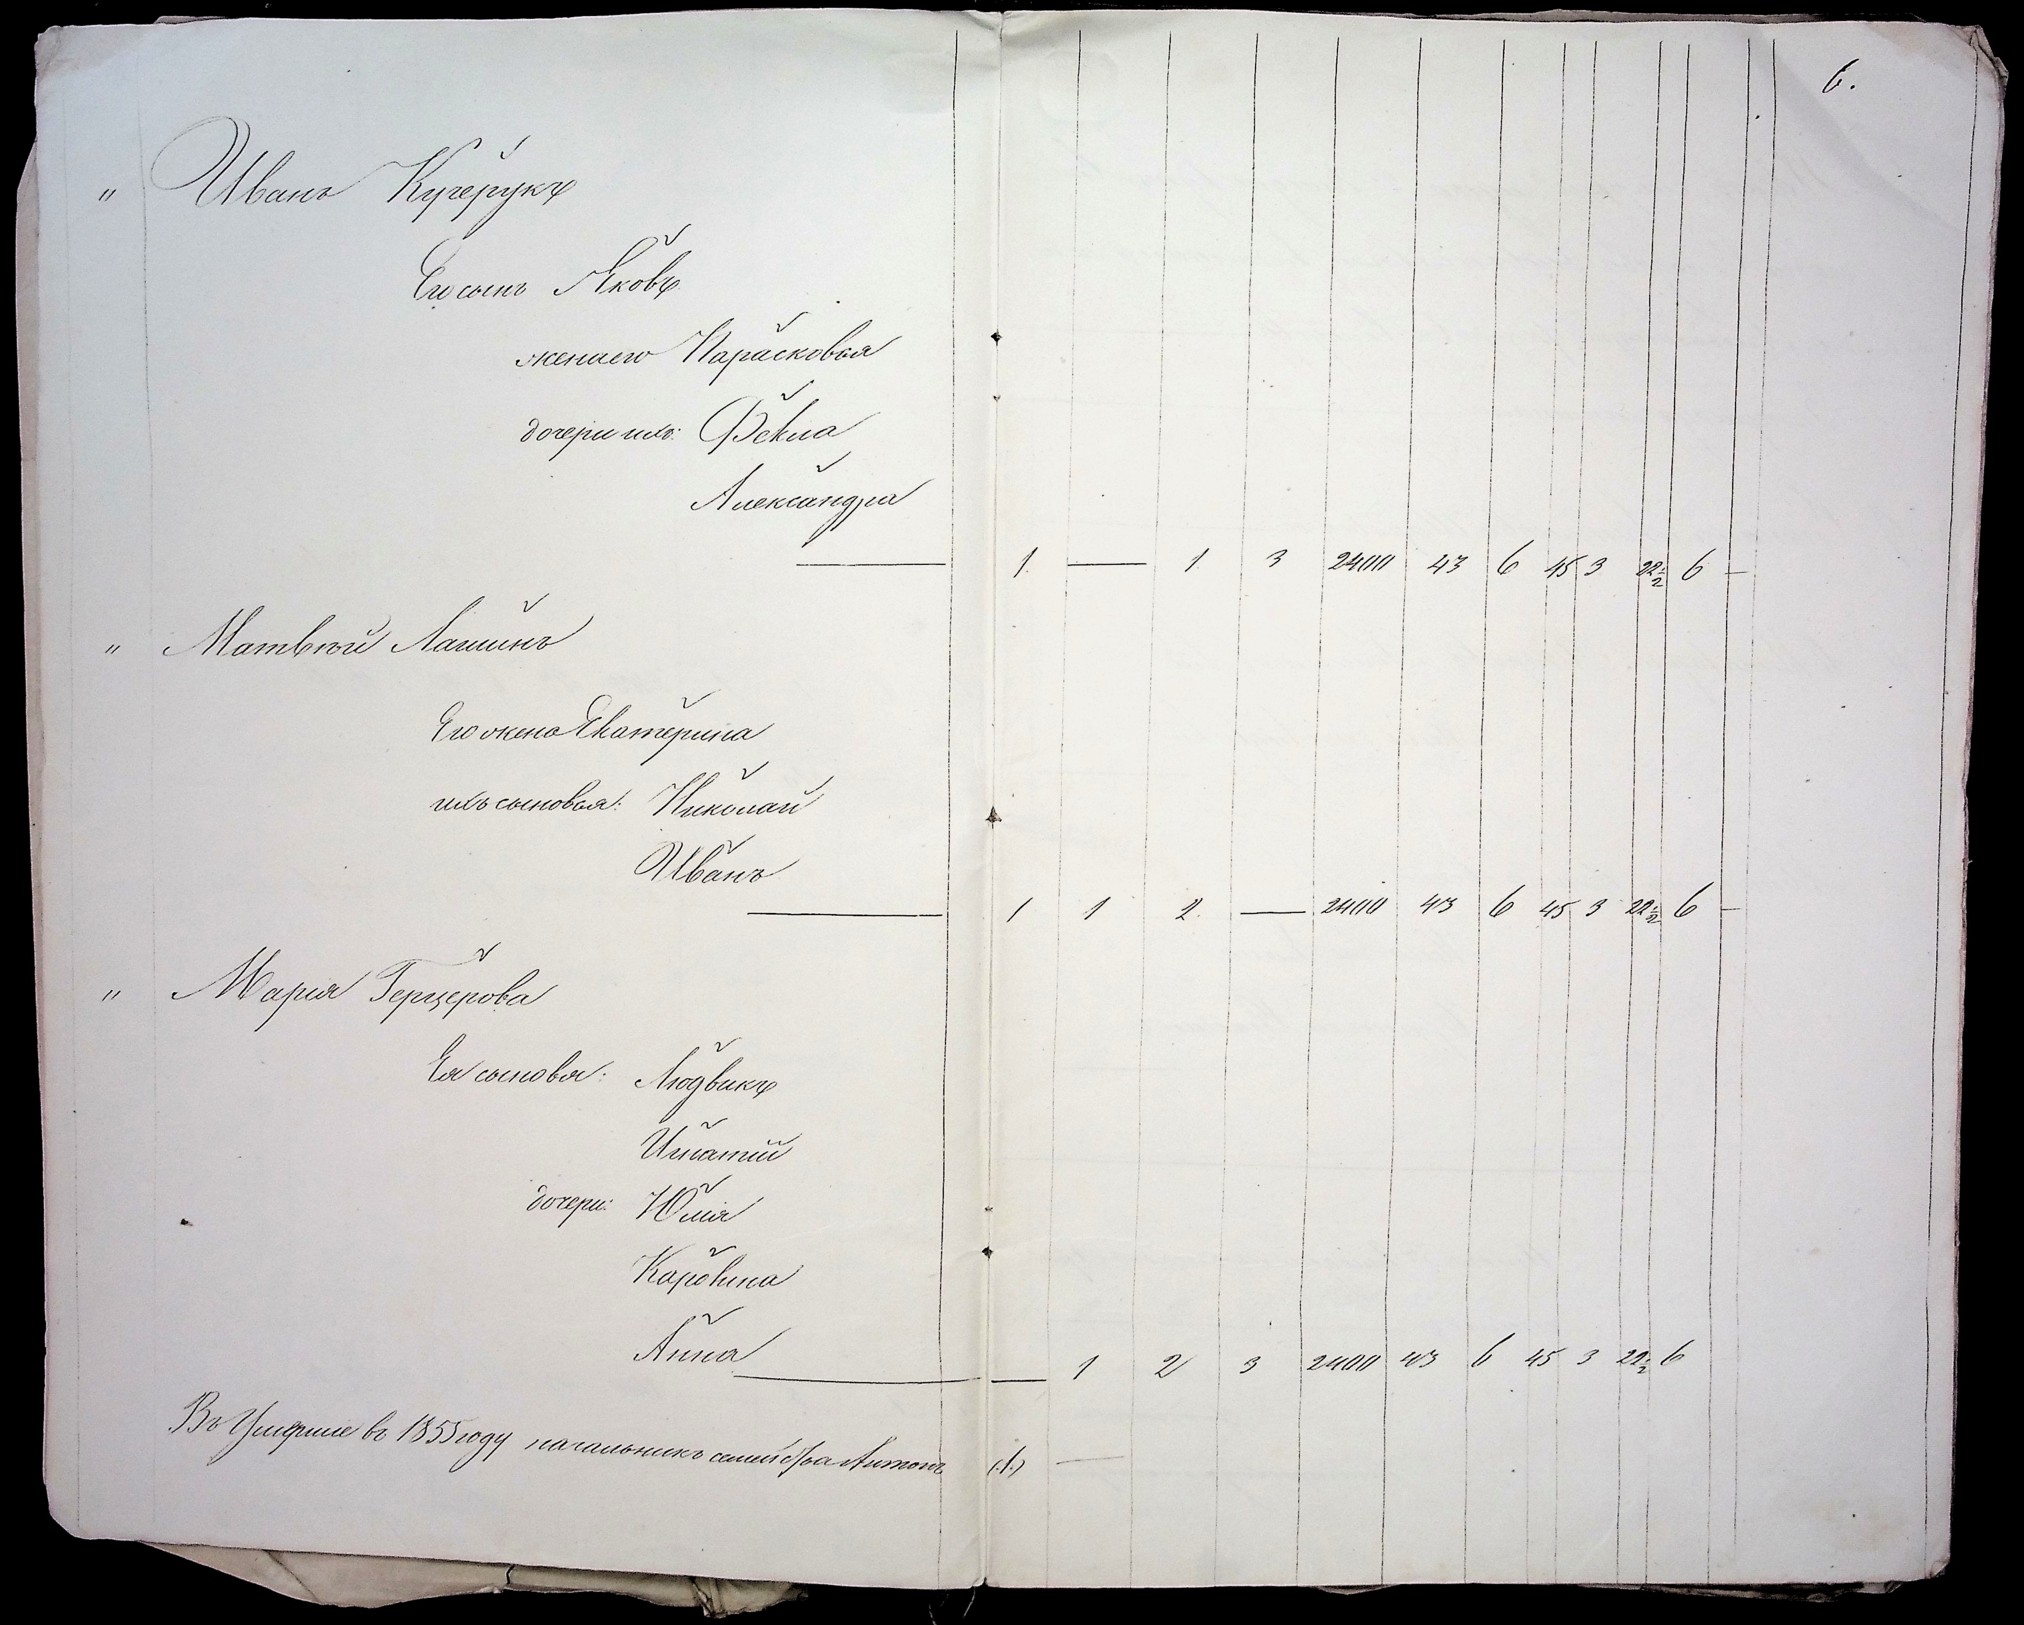 6.
" Иванъ Кучерукъ
Его сынъ Яковъ
жена его Парасковья
дочери ихъ: Фекла
Александра
1 — 1 3 2400 43 6 45 3 22½ 6 —
" Матвѣй Лашинъ
Его жена Екатерина
ихъ сыновья: Николай
Иванъ
1 1 2 — 2400 43 6 45 3 22½ 6 —
" Марія Герцерова
Ея сыновья: Людвикъ
Игнатій
дочери: Юлія
Каролина
Анна
— 1 2 3 2400 43 6 45 3 22½ 6
въ 1855 году начальникъ семейства Антонъ (1) —